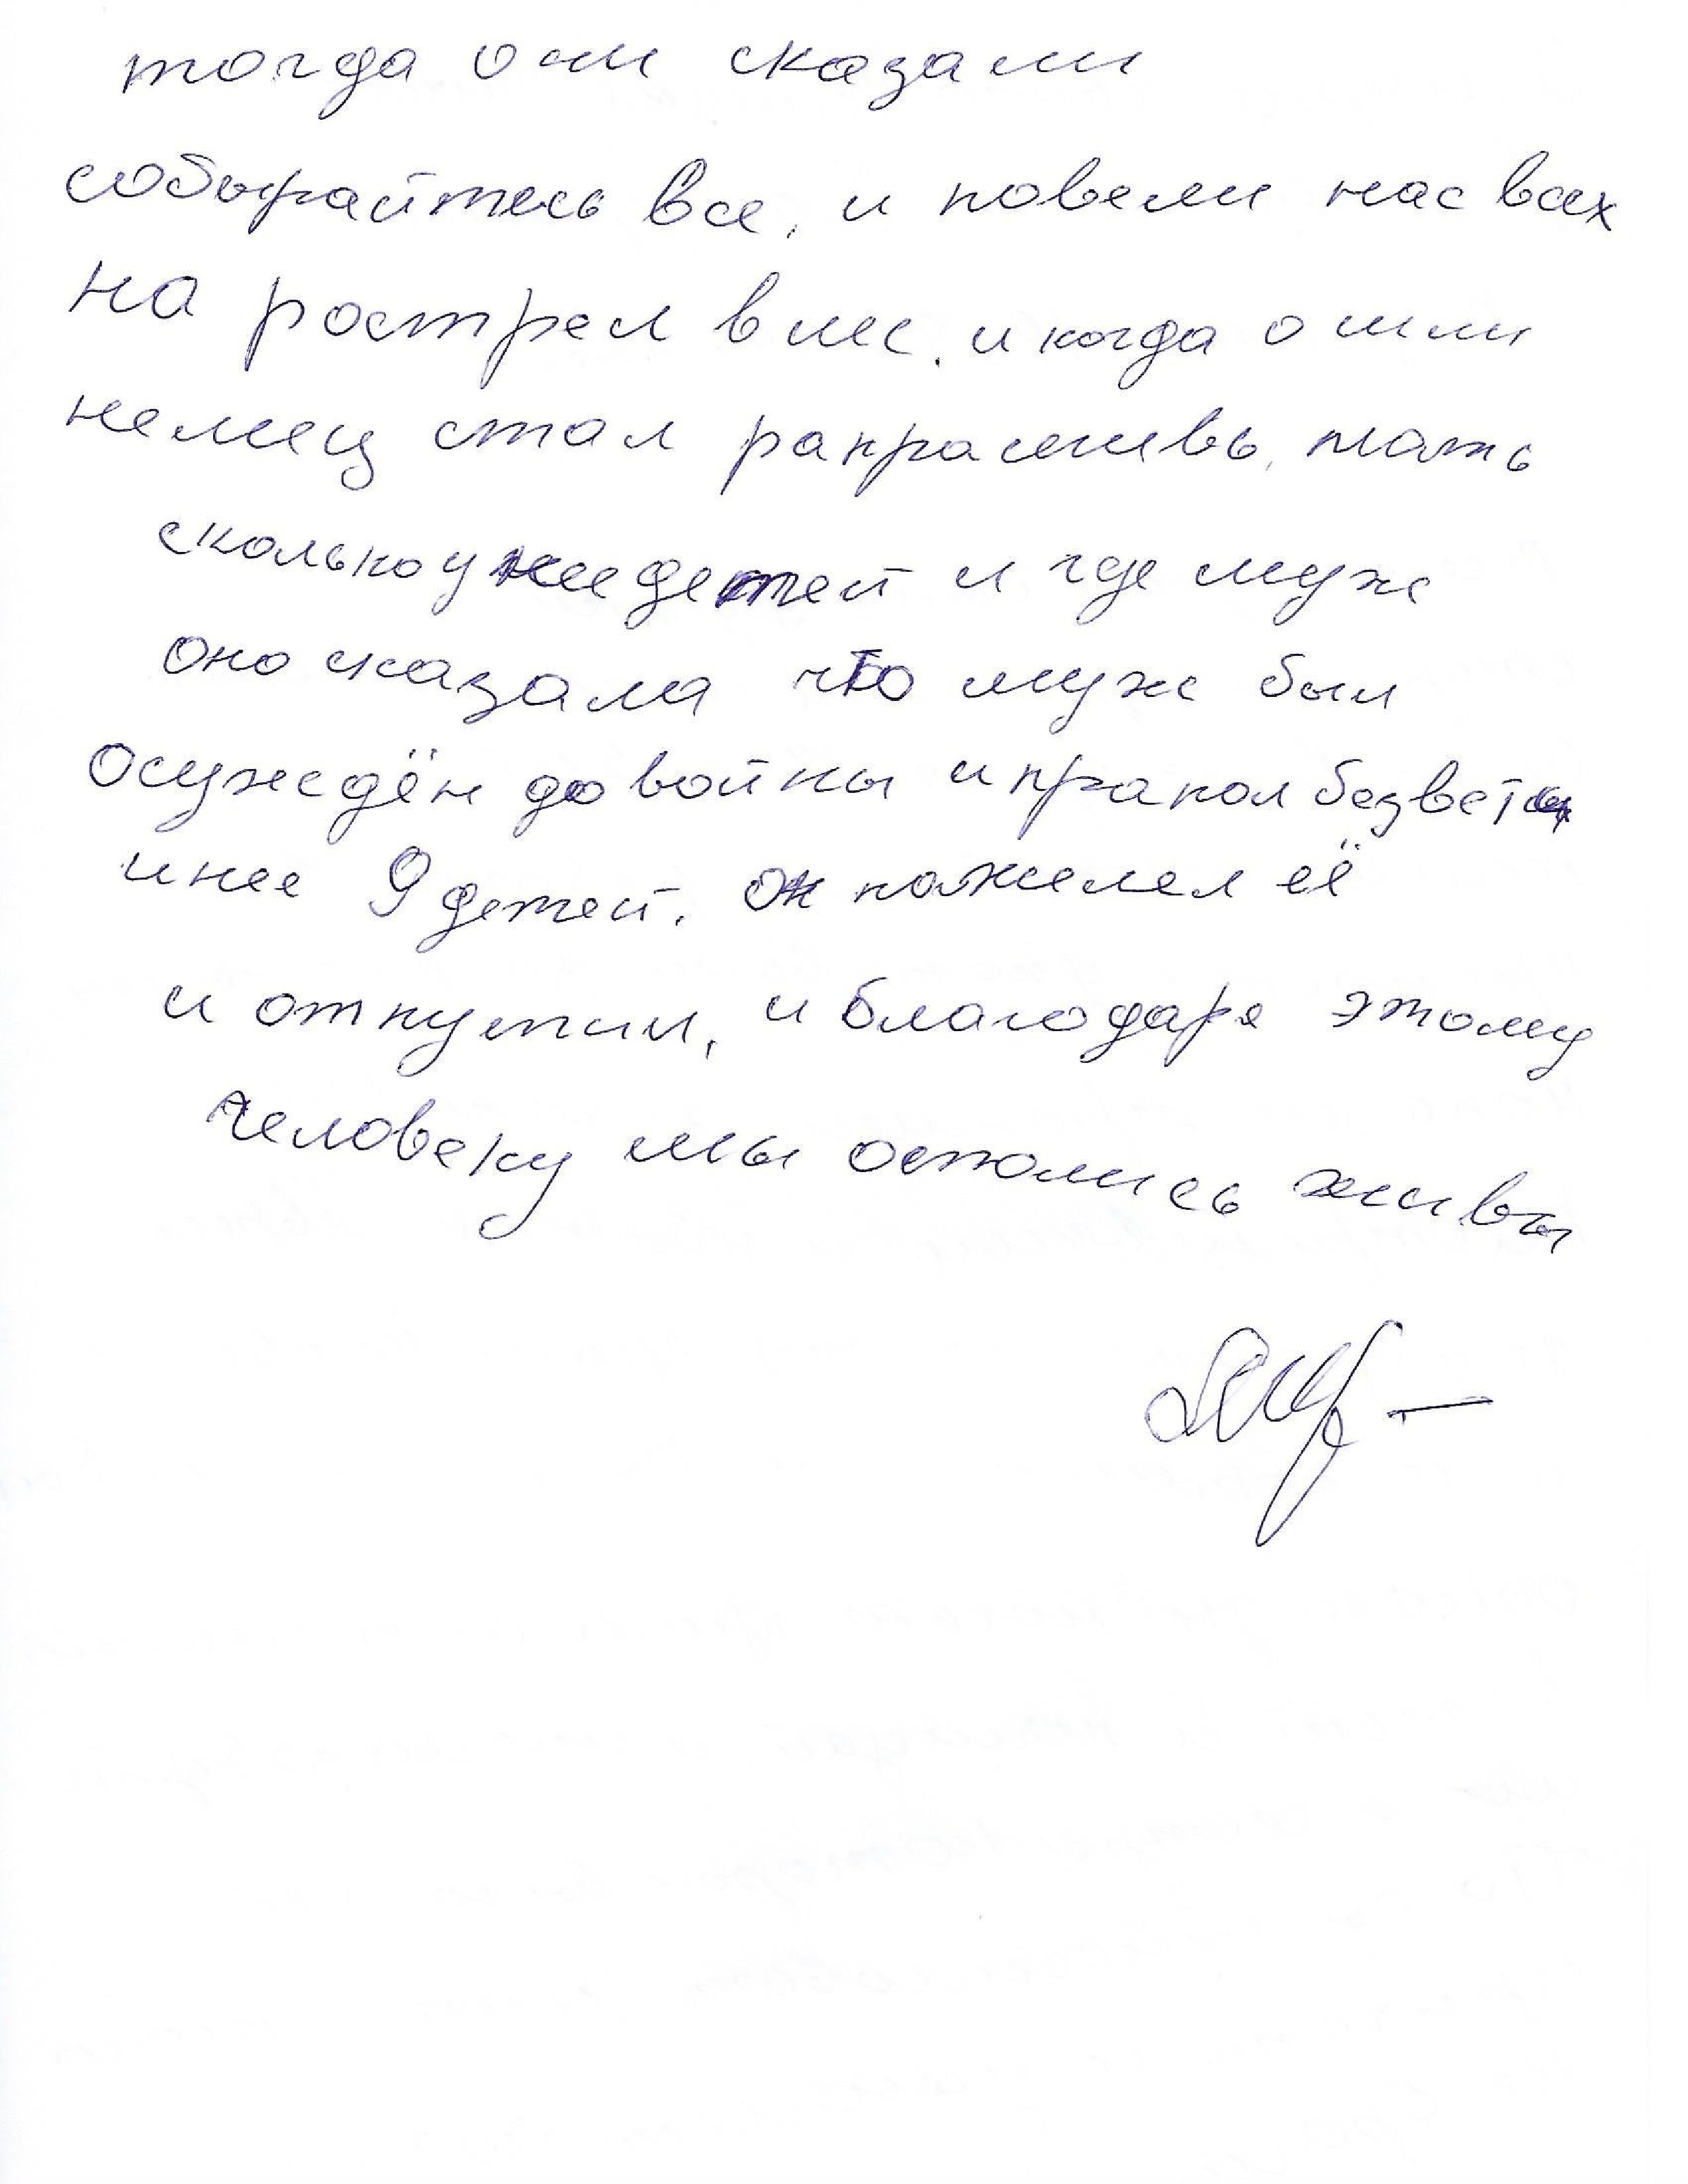 тогда они сказали
собырайтесь все, и повели нас всех
на рострел в лес. и когда ошли
немец стал рапрашивь, мать
сколько у нее детей и где муж
оно сказала что муж был
осуждён до войны и прапол безвести
и нее 9 детей. он пожелел её
и отпустил, и благодаря этому
человеку мы остолись живы